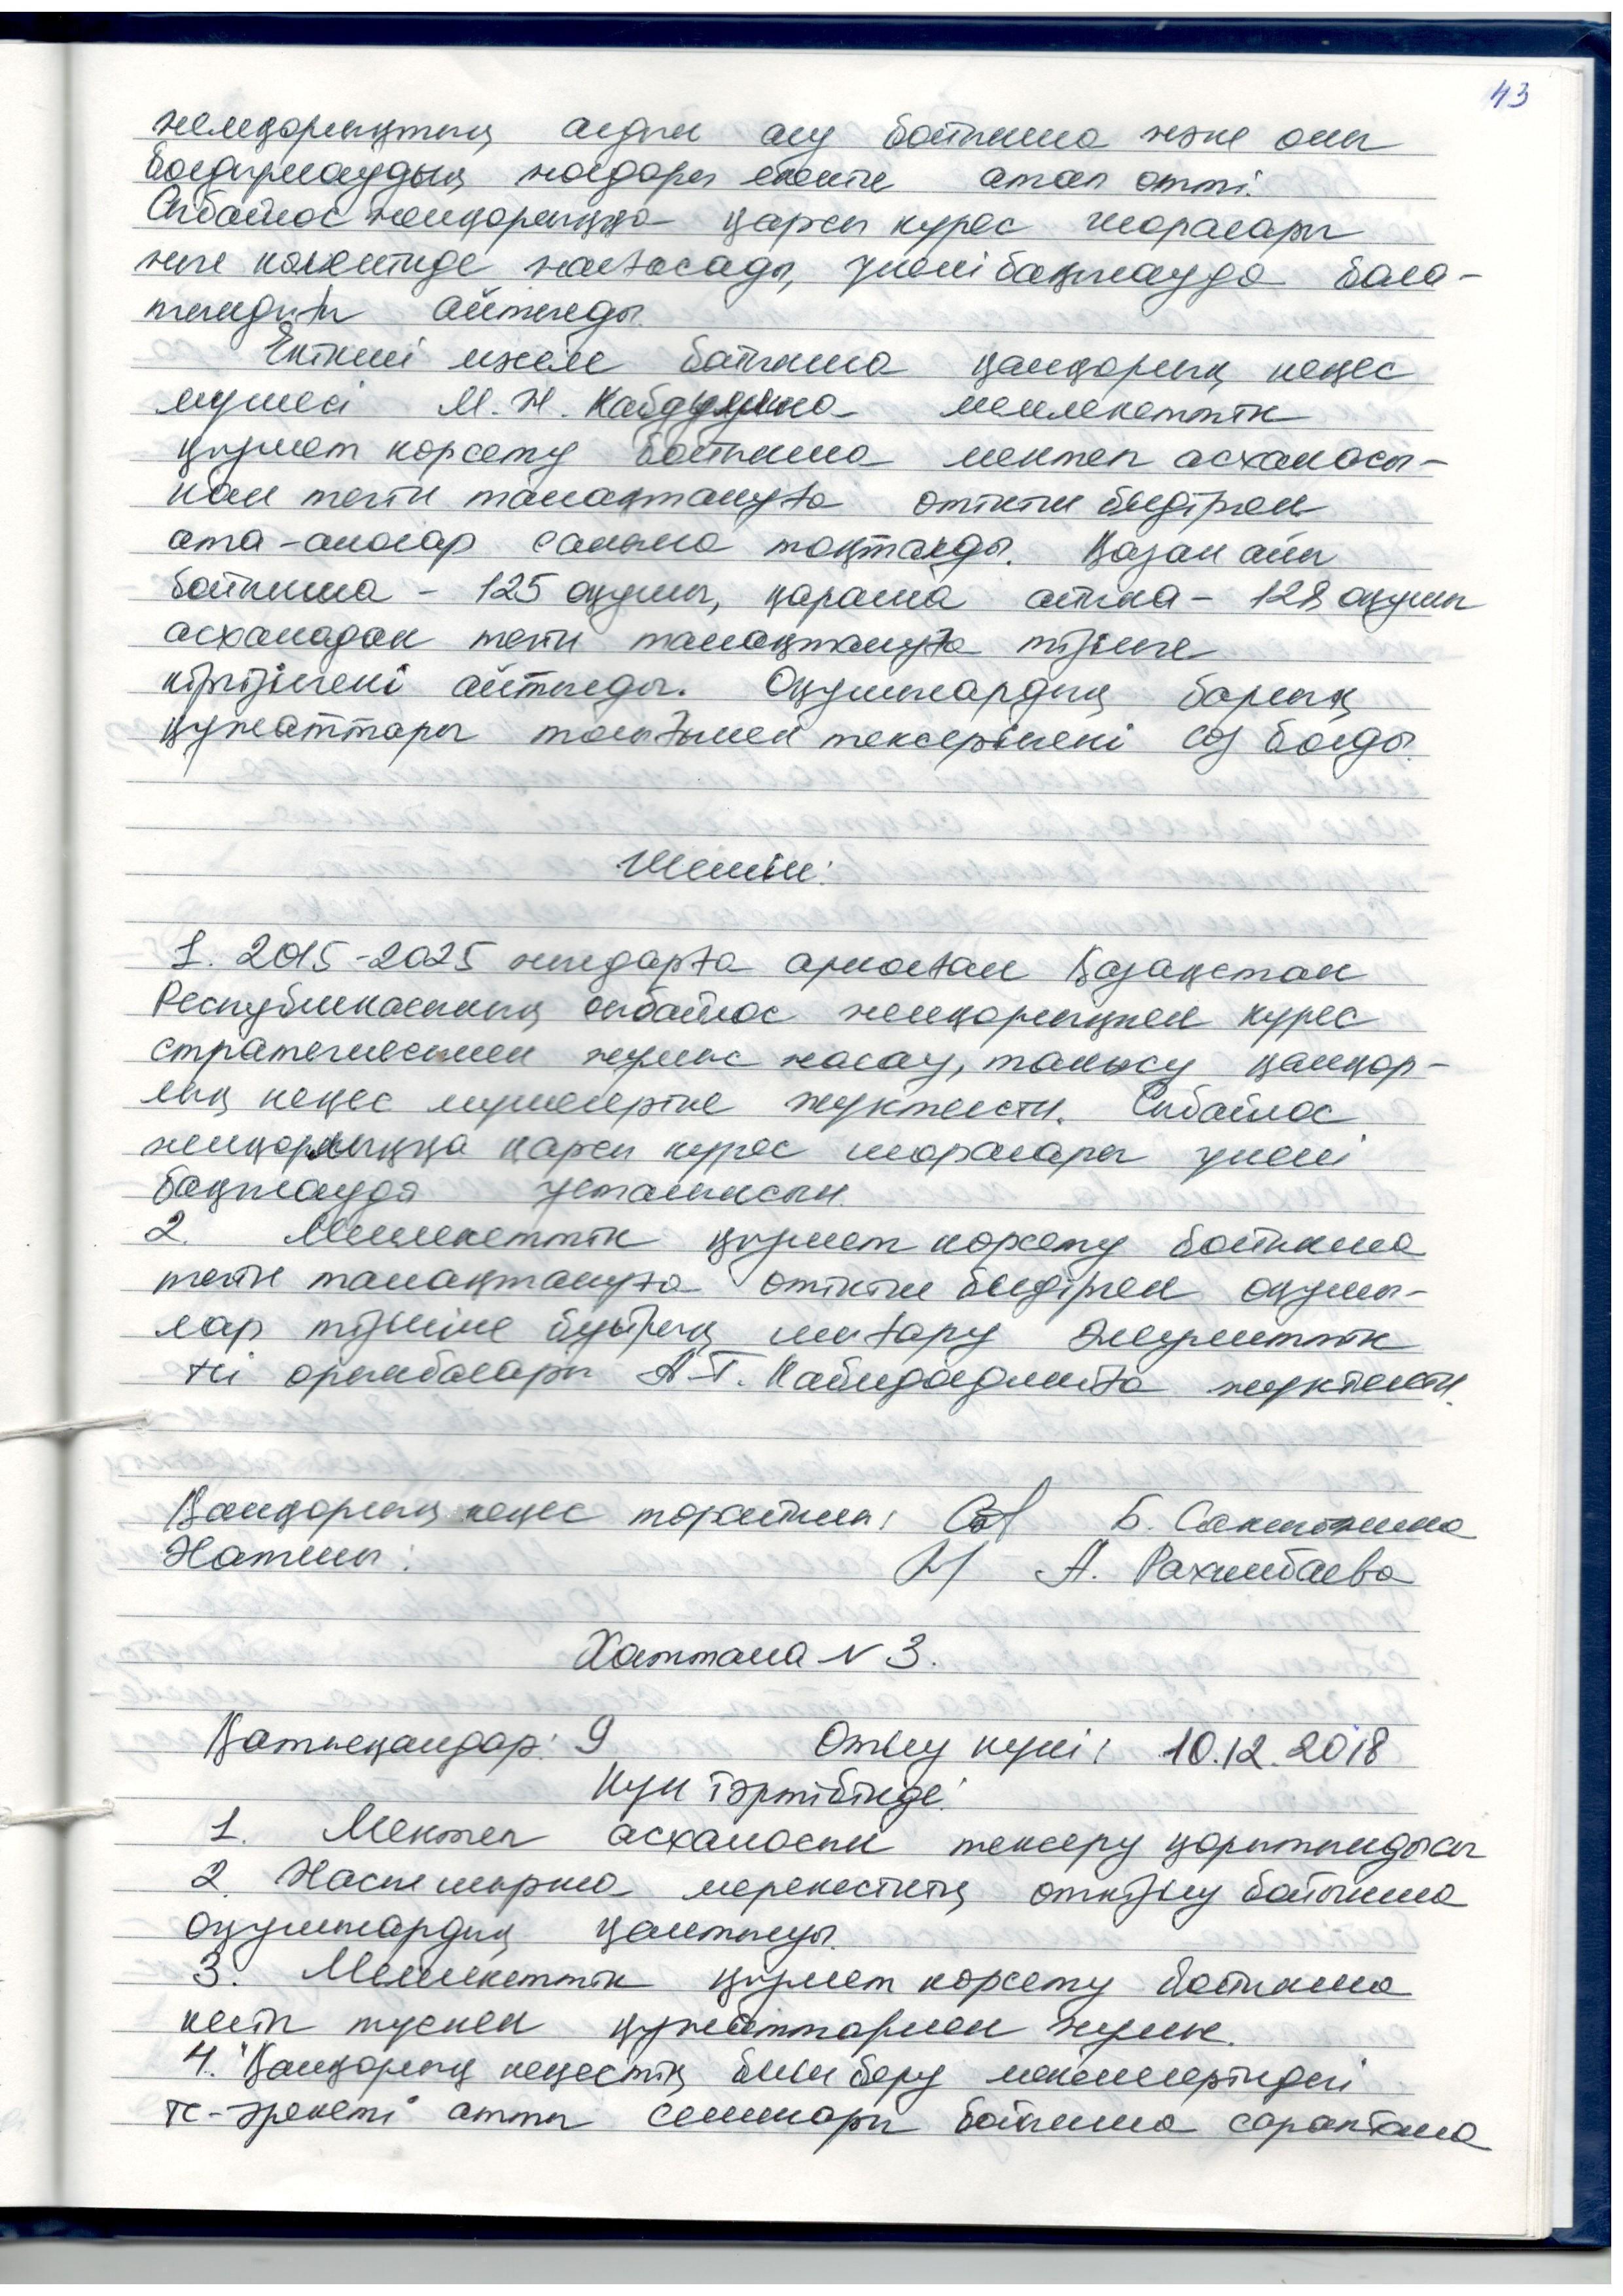 43
жемқорлықтың алдын алу бойынша және оны
болдырмаудың жолдары екенін атап өтті.
Сыбайлас жемқорлыққа қарсы күрес шаралары
жыл көлемінде жалғасады, үнемі бақылауда бола-
тындығы айтылды.
Екінші мәселе бойынша қамқорлық кеңес
мүшесі М.Н. мемлекеттік
қызмет көрсету бойынша мектеп асханасы-
нан тегін тамақтануға өтініш білдірген
ата-аналар санына тоқталды. Қазан айы
бойынша - 125 оқушы, қараша айына - 128 оқушы
асханадан тегін тамақтануға тізімге
кіргізілгені айтылды. Оқушылардың барлық
құжаттары толығымен тексерілгені сөз болды.
Шешім:
1. 2015-2025 жылдарға арналған Қазақстан
Республикасының сыбайлас жемқорлықпен күрес
стратегиясымен жұмыс жасау, танысу қамқор-
лық кеңес мүшелеріне жүктелсін. Сыбайлас
жемқорлыққа қарсы күрес шаралары үнемі
бақылауда ұсталынсын.
2. Мемлекеттік қызмет көрсету бойынша
тегін тамақтануға өтініш білдірген оқушы-
лар тізіміне бұйрық шығару әлеуметтік
ісі орынбасары А.Т. жүктелсін.
Қамқорлық кеңес төрайымы: Б.
Хатшы: А. Рахимбаева
Хаттама N 3.
Қатысқандар: 9 Өткізу күні: 10.12.2018
Күн тәртібінде:
1. Мектеп асханасын тексеру қорытындысы
2. Жаңа шырша мерекесінің өткізілу бойынша
оқушылардың қамтылуы.
3. Мемлекеттік қызмет көрсету бойынша
келіп түскен құжаттармен жұмыс.
4. "Қамқорлық кеңестің білім беру мекемелеріндегі
іс-әрекеті" атты семинары бойынша сараптама